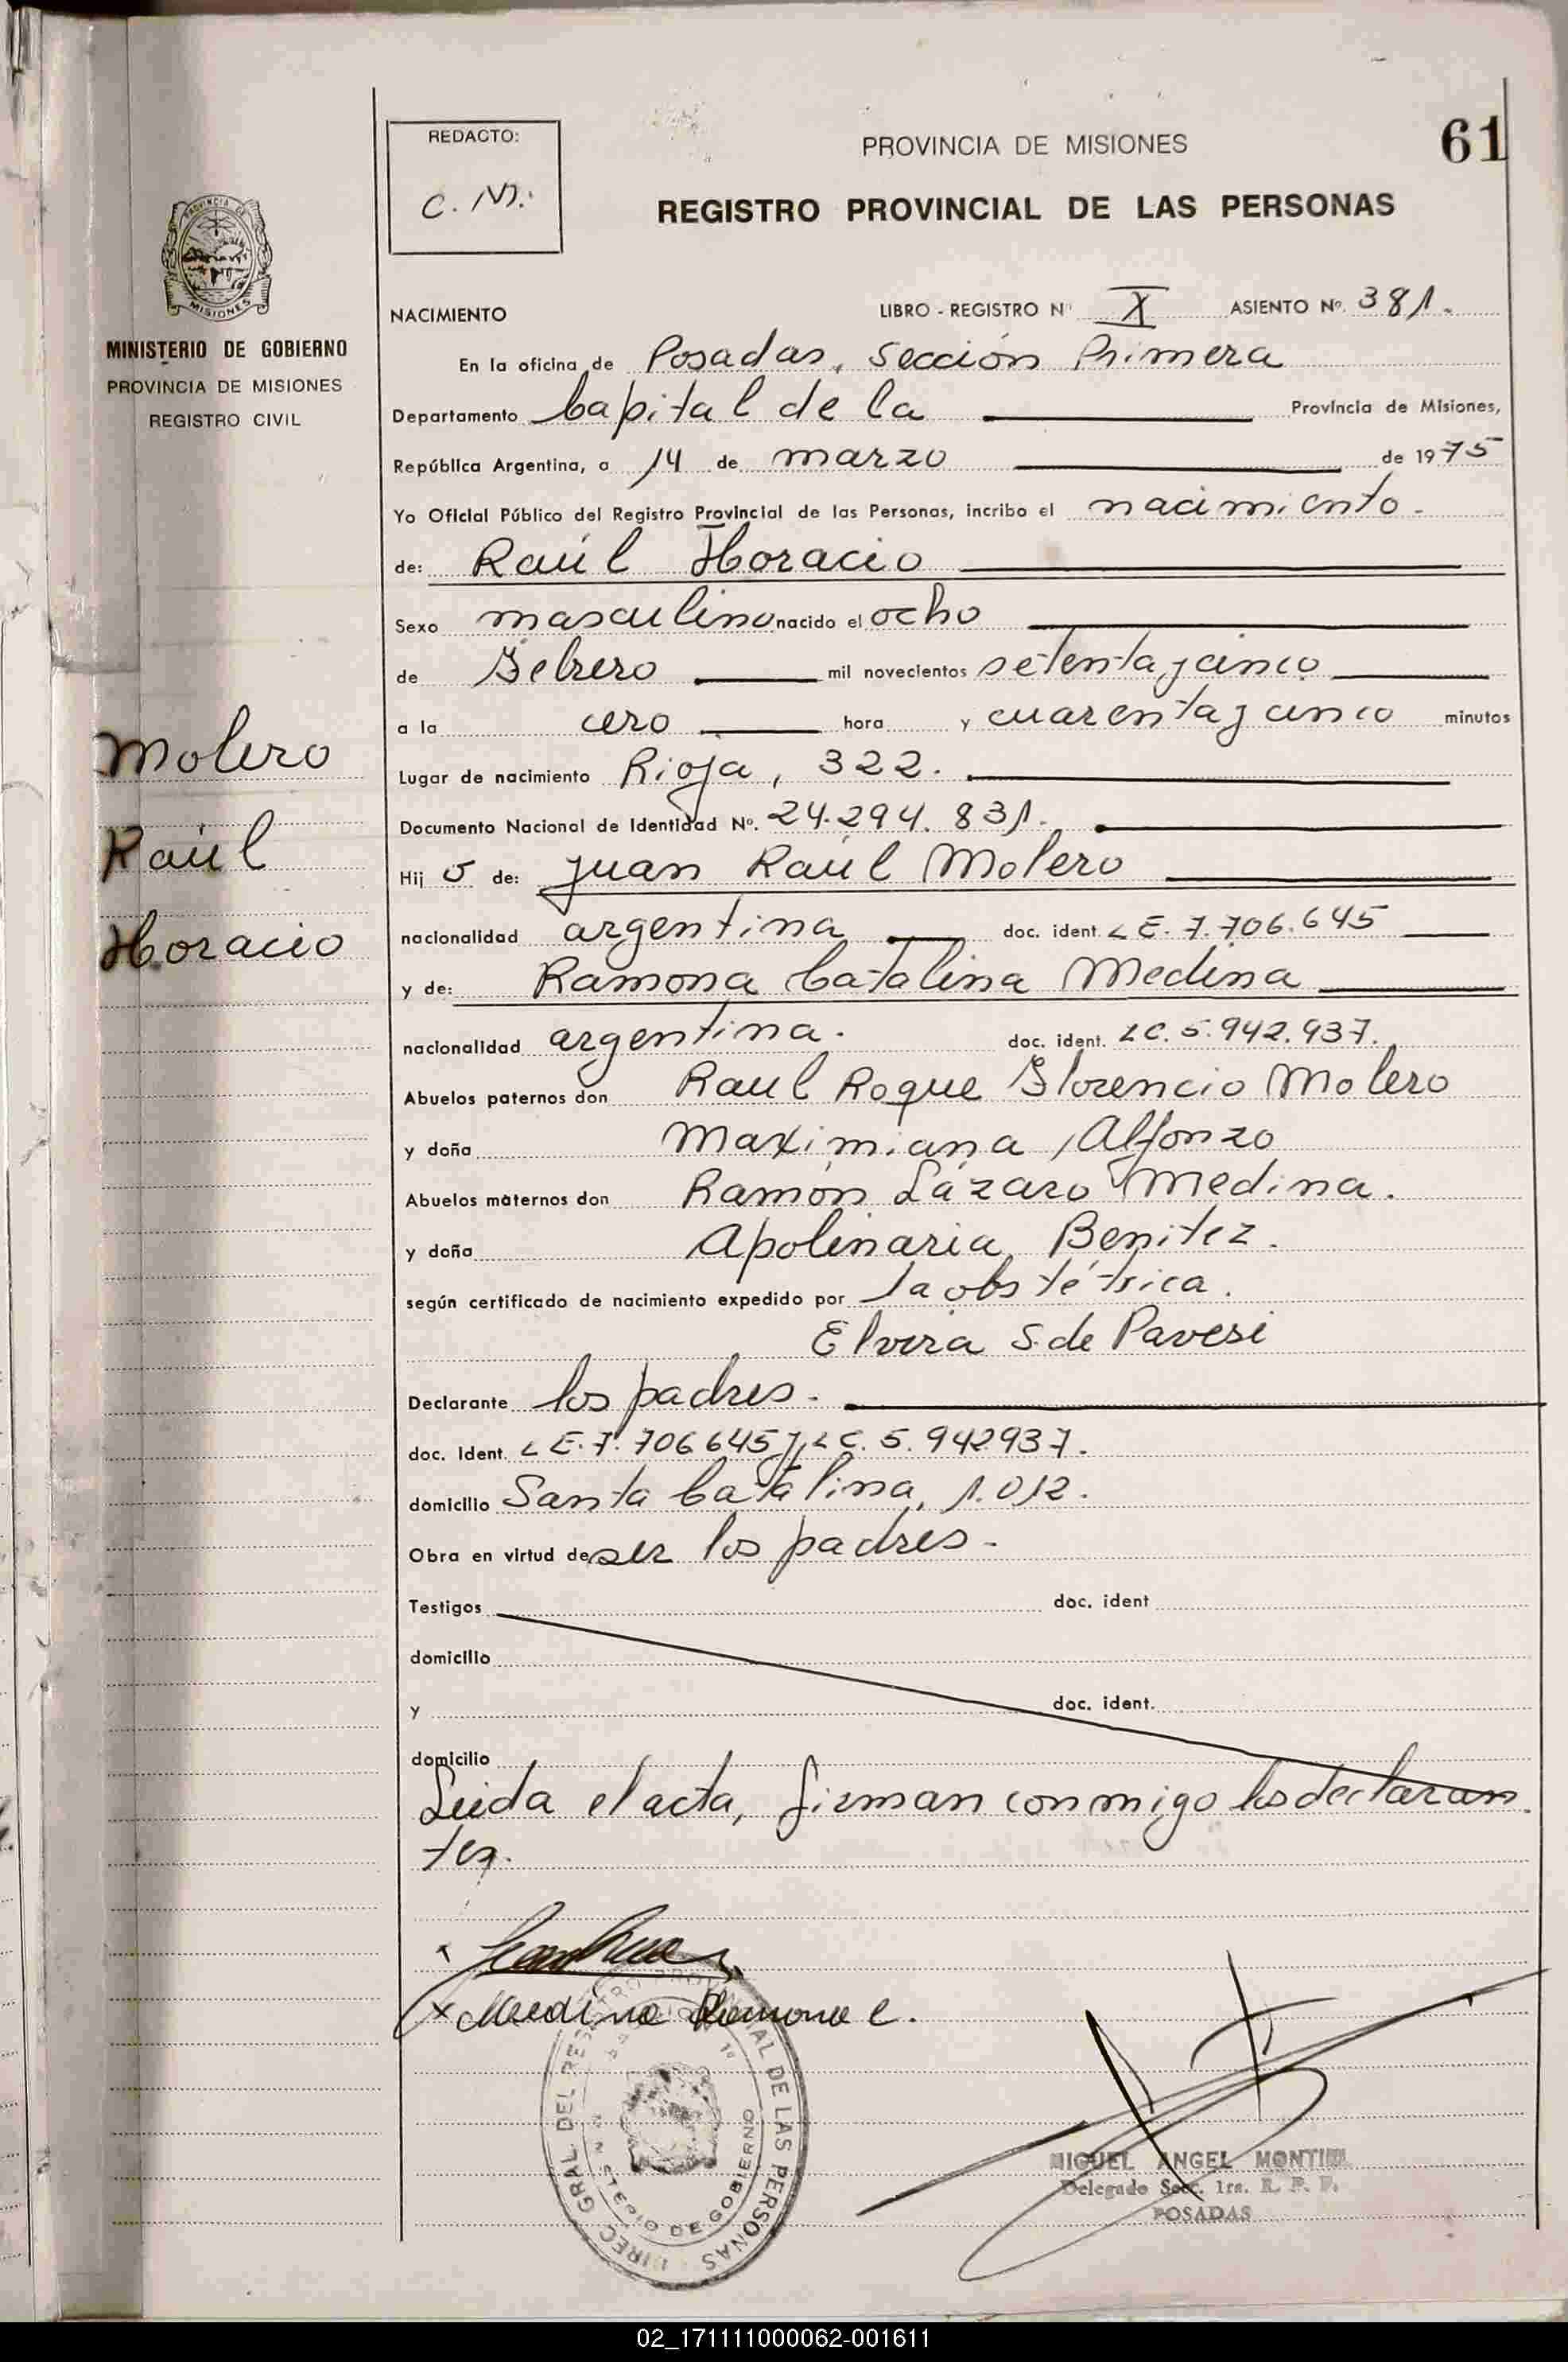 REDACTO:
C. M.
PROVINCIA DE MISIONES
61
REGISTRO PROVINCIAL DE LAS PERSONAS
PROVINCIA DE
MISIONES
MINISTERIO DE GOBIERNO
PROVINCIA DE MISIONES
REGISTRO CIVIL
Molero
Raúl
Horacio
NACIMIENTO LIBRO - REGISTRO Nº X ASIENTO Nº. 381.
En la oficina de Posadas, Sección Primera
Departamento Capital de la Provincia de Misiones,
República Argentina, a 14 de marzo de 1975
Yo Oficial Público del Registro Provincial de las Personas, incribo el nacimiento.
de: Raúl Horacio
Sexo masculino nacido el ocho
de Febrero mil novecientos setenta y cinco
a la cero hora y cuarenta y cinco minutos
Lugar de nacimiento Rioja, 322.
Documento Nacional de Identidad Nº. 24.294.831.
Hij o de: Juan Raúl Molero
nacionalidad argentina doc. ident. L E. 7.706.645
y de: Ramona Catalina Medina
nacionalidad argentina. doc. ident. L C. 5.942.937.
Abuelos paternos don Raul Roque Florencio Molero
y doña Maximiana Alfonzo
Abuelos maternos don Ramón Lázaro Medina.
y doña Apolinaria Benitez.
según certificado de nacimiento expedido por la obstétrica.
Elvira S. de Pavesi
Declarante los padres.
doc. ident. L E. 7. 706645 y L C. 5. 942937.
domicilio Santa Catalina, 1.012.
Obra en virtud de ser los padres.
Testigos doc. ident
domicilio
y doc. ident.
domicilio
Leida el acta, firman conmigo los declaran
tes.
x Medina Ramona C.
DIREC GRAL DEL REGISTRO PROVINCIAL DE LAS PERSONAS
MINISTERIO DE GOBIERNO
MIGUEL ANGEL MONTIEL
Delegado Secc. 1ra. R. P. P.
POSADAS
02_171111000062-001611